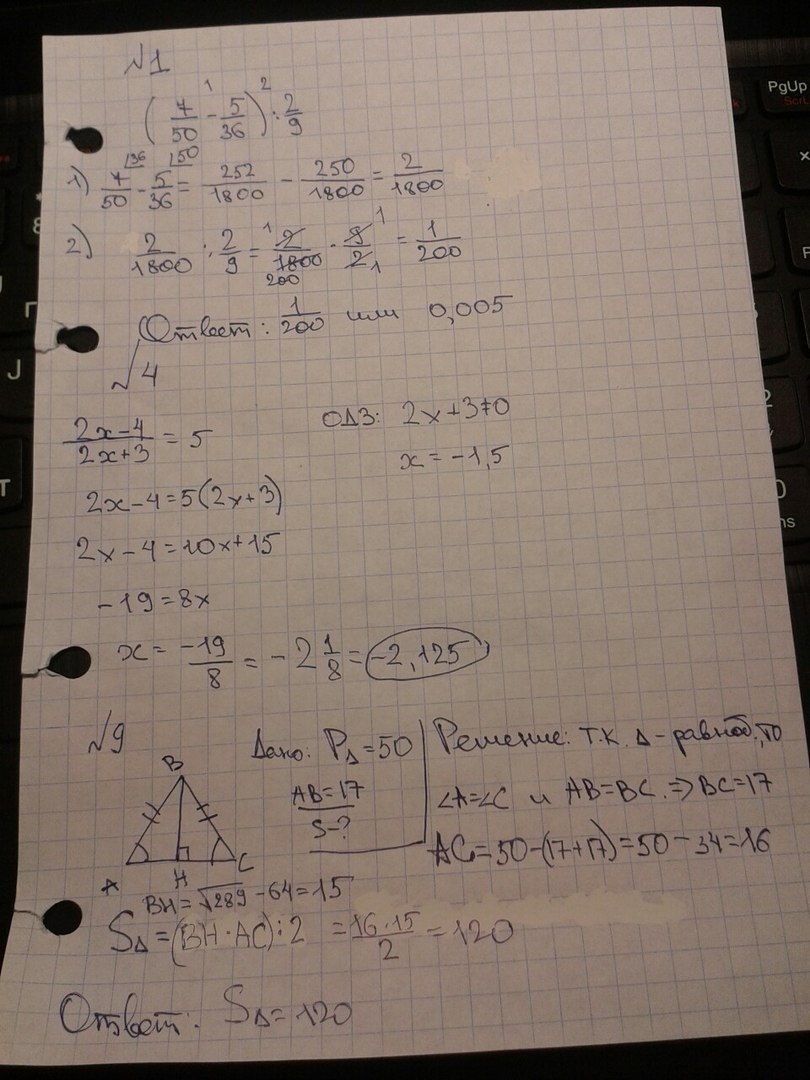 №1
(7/50 - 5/36) : 2/9
1 2
1) 7/50 - 5/36 = 252/1800 - 250/1800 = 2/1800
/36 /50
2) 2/1800 : 2/9 = 2/1800 · 9/2 = 1/200
1 200 1 1
Ответ: 1/200 или 0,005
√4
(2x-4)/(2x+3) = 5
ОДЗ: 2x+3≠0
x = -1,5
2x-4=5(2x+3)
2x-4=10x+15
-19=8x
x = -19/8 = -2 1/8 = -2,125
№9
Дано: P△=50
AB=17
S-?
Решение: т.к. △-равноб., то
∠A=∠C и AB=BC. ⇒ BC=17
AC=50-(17+17)=50-34=16
B
A H C
BH=√289-64=15
S△=(BH·AC):2 = 16·15/2 = 120
Ответ: S△=120
PgUp
J